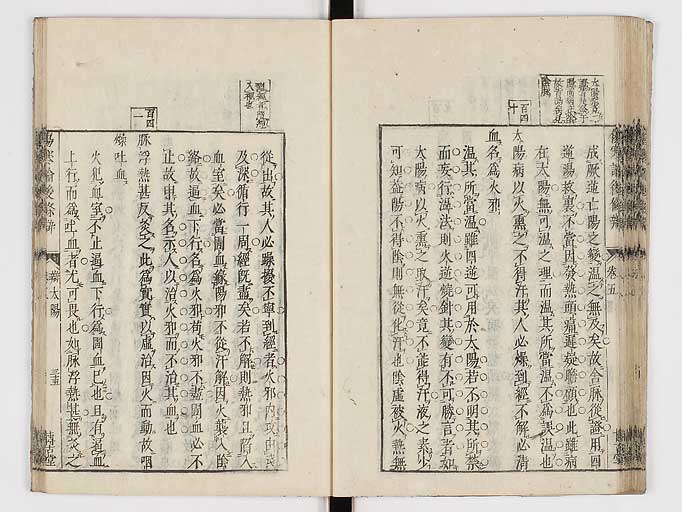 成厥逆亡陽之變溫之無及矣故舍脈從證用四
逆湯救裏不當因發熱頭痛遲疑瞻顧也此雖病
在太陽無可溫之理而溫其所當溫不為誤溫也
太陽病以火熏之不得汗其人必燥到經不解必清
血名為火邪
溫其所當溫雖四逆可用於太陽若不明其所禁
而妄行溫法則火逆燒針其變有不可勝言者如
太陽病以火熏之取汗矣竟不能得汗液之素少
可知蓋陽不得陰則無從化汗也陰虛被火熱無
從出故其人必躁擾不寧到經者火邪內攻由
及深循行一周經既盡矣若不解則熱邪且陷入
血室矣必當圊血緣陽邪不從汗解因火襲入陰
絡故逼血下行名為火邪苟火邪不盡圊血必不
止故申其名示人以治火邪而不治其血也
脈浮熱甚反灸之此為實實以虛治因火而動故咽
燥吐血
火犯血室不止逼血下行為圊血已也且有逼血
上行而為吐血者尤可畏也如脈浮熱甚無灸之
百四
十
百四
一
卷五
傷寒論後條辨
辨太陽